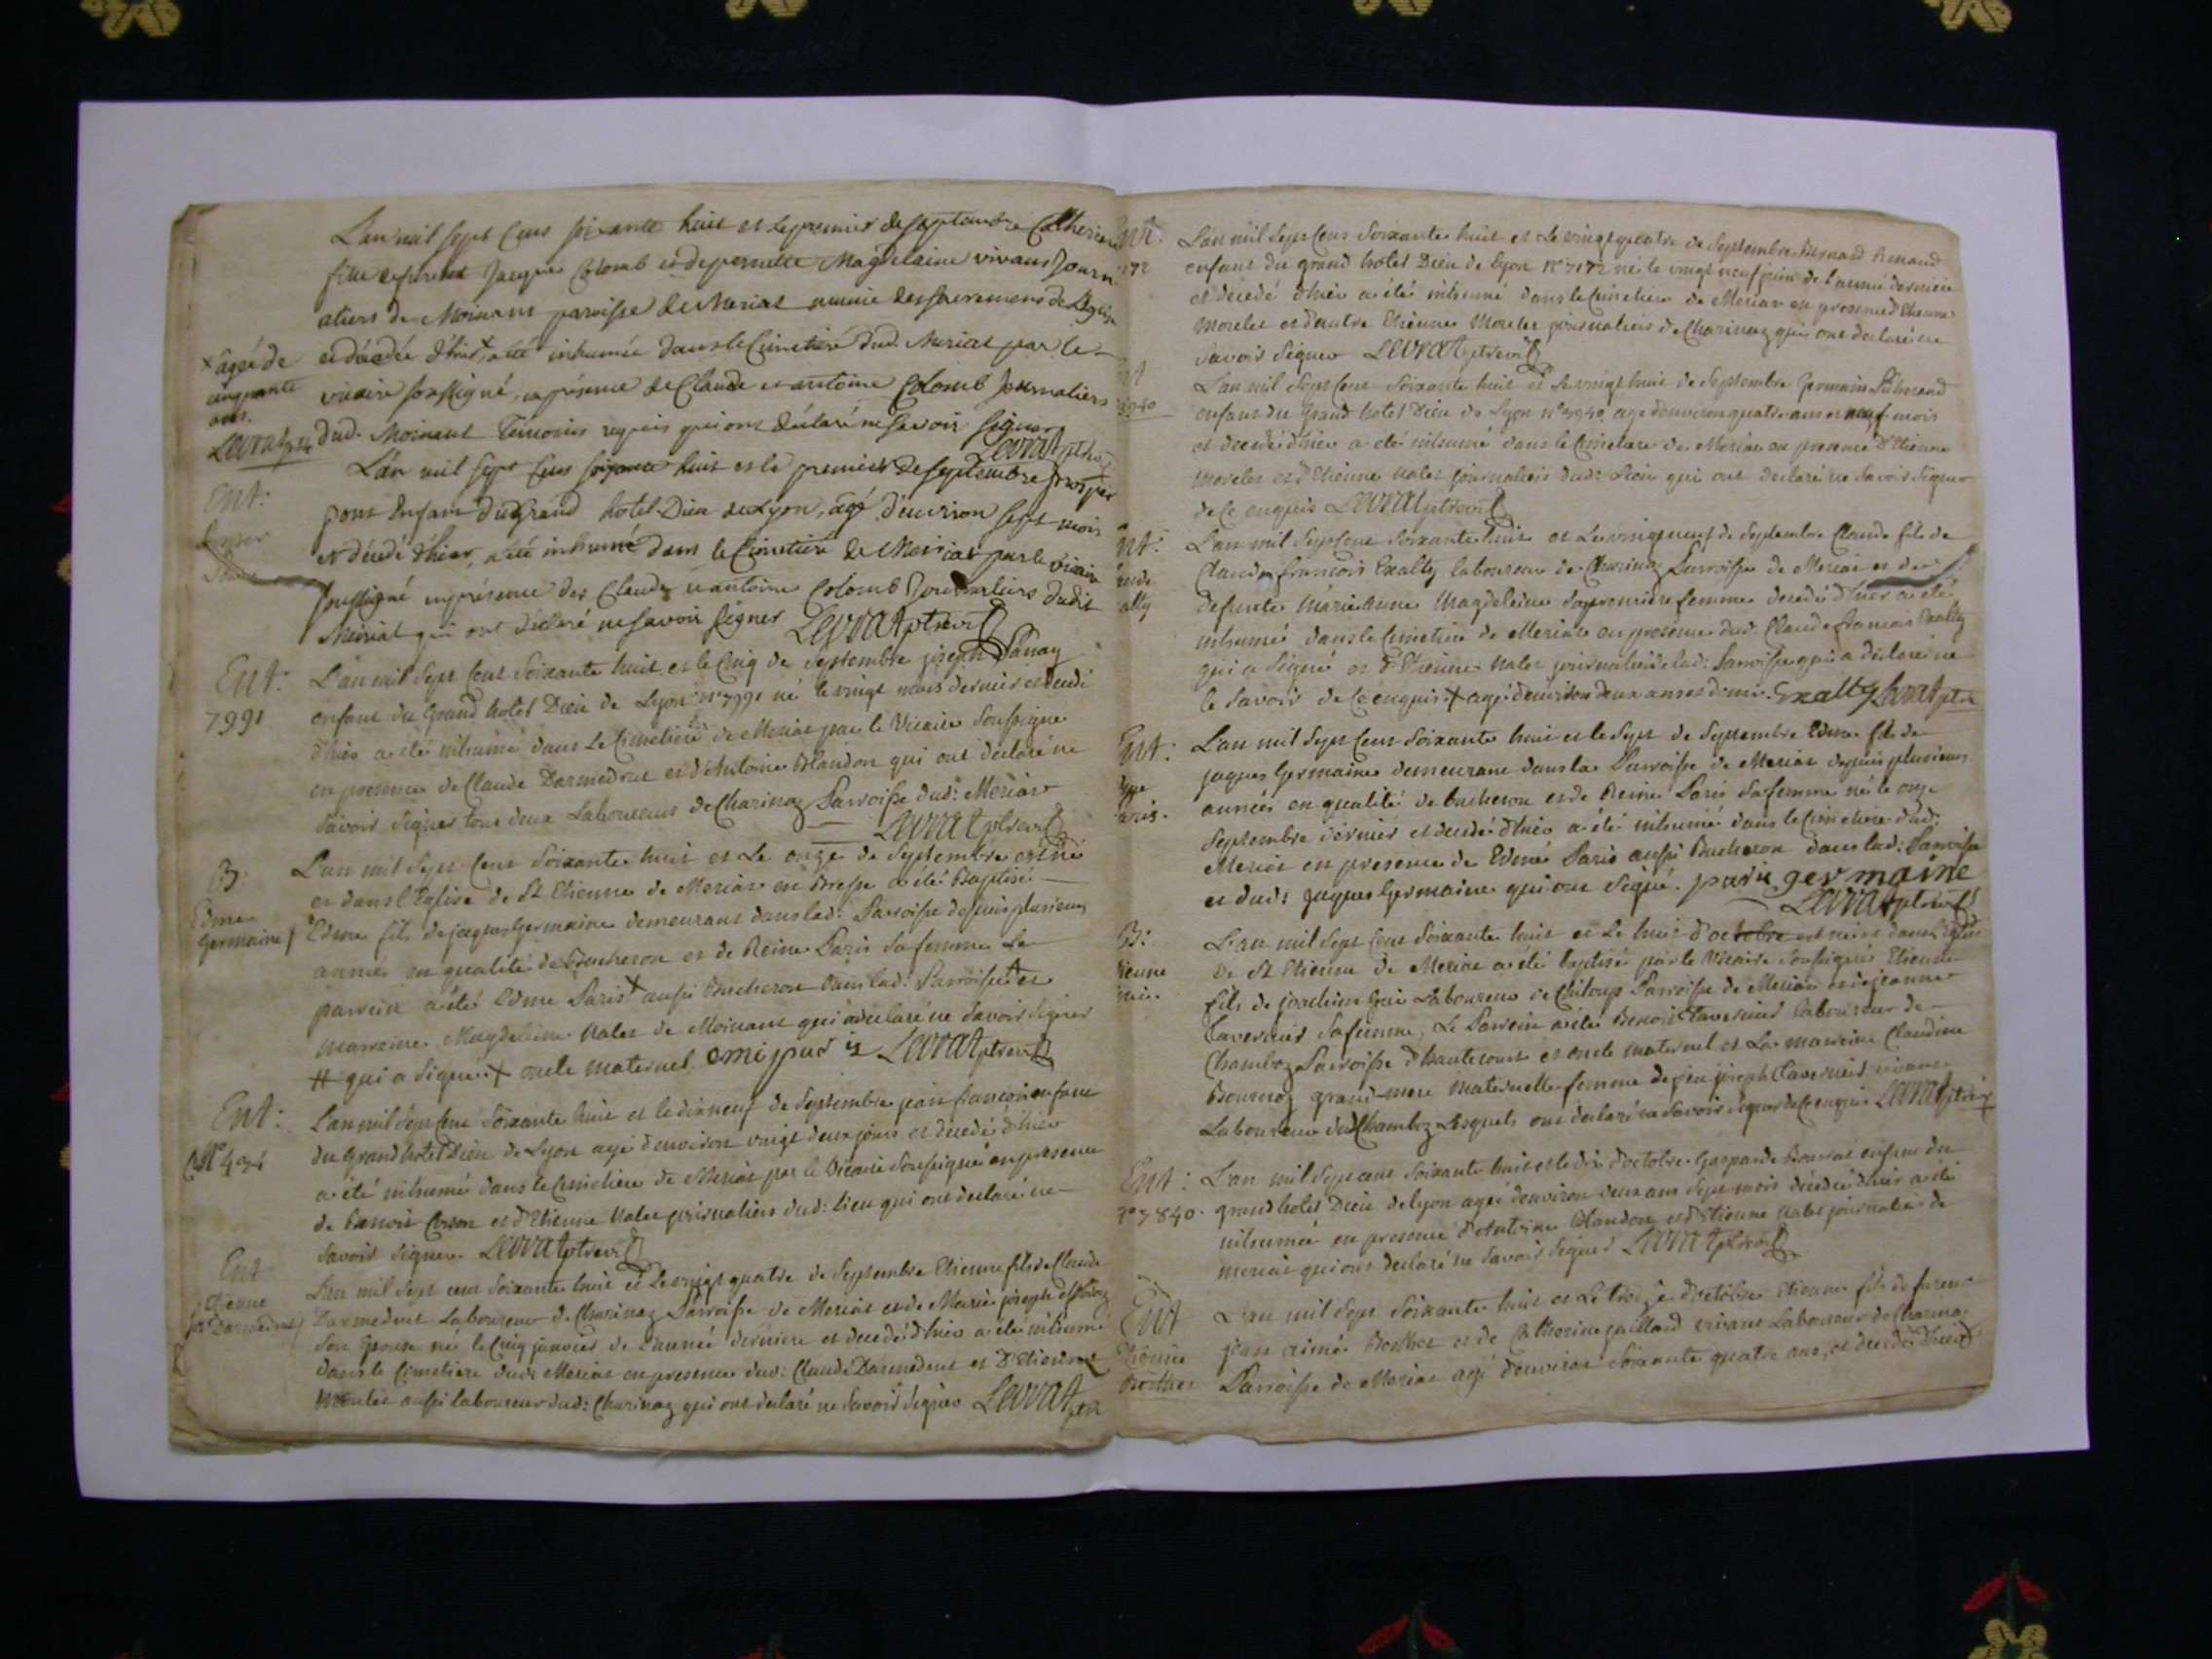 L'an mil sept cens soixante huit et le premier de septembre Catherine
fille de furent Jacques Colomb et de pernette Magdelaine vivans Journ
aliers de Moinans paroisse de Meriat munie des sacremens de l'Eglise
et décédée d'hier + a été inhumée dans le Cimetiere dud. Meriat par le
+ âgée de cinquante ans. Levrat ptre
vicaire soussigné, en présence de Claude et antoine Colomb Journaliers
dud. Moinans Temoins requis qui ont déclaré ne savoir signer
Levrat ptre
Ent:
L'an mil sept cens soixante huit et le premier de septembre prosper
pont Enfant du Grand hotel-Dieu de Lyon, agé d'environ sept mois
et décédé d'hier, a été inhumé dans le Cimetiere de Meriat par le vicaire
soussigné en présence des Claude et antoine Colomb Journaliers dudit
Meriat qui ont déclaré ne savoir signer Levrat ptre vic
Ent: 7991
L'an mil sept cent soixante huit et le Cinq de Septembre joseph
enfant du Grand hotel Dieu de Lyon n° 7991 né le vingt mars dernier et decedé
d'hier a été inhumé dans le Cimetiere de Meriat par le Vicaire soussigné
en presence de Claude Darmedrut et d'Antoine Blandon qui ont déclaré ne
savoir signer tous deux Laboureurs de Charinaz Parroisse dud: Meriat
Levrat ptre vic
B: Edme Germaine
L'an mil sept cent soixante huit et Le onze de Septembre est né
et dans l'Eglise de St Etienne de Meriat en Bresse a été Baptisé
Edme fils de jaques Germaine demeurant dans lad: Parroisse depuis plusieurs
années en qualité de Bucheron et de Reine Paris sa femme Le
parrein a été Edme Paris + aussi Bucheron dans lad: Parroisse # et
marreine Magdeleine Nalet de Moinans qui a déclaré ne savoir signer
# qui a signé. + oncle maternel. emi paris Levrat ptre vic
Ent:
L'an mil sept cent soixante huit et le dixneuf de Septembre jean francois enfant
du Grand hotel Dieu de Lyon agé d'environ vingt deux jours et decedé d'hier
a été inhumé dans le Cimetiere de Meriat par le Vicaire soussigné en presence
de Benoit et d'Etienne Nalet journaliers dud: Lieu qui ont declaré ne
savoir signer. Levrat ptre vic
Ent Etienne Darmedrut
L'an mil sept cent soixante huit et Le vingt quatre de Septembre Etienne fils de Claude
Darmedrut Laboureur de Charinaz Parroisse de Meriat et de Marie joseph
son Epouse né le Cinq janvier de l'année derniere et decedé d'hier a été inhumé
dans le Cimetiere dud: Meriat en presence dud: Claude Darmedrut et d'Etienne
aussi laboureur dud: Charinaz qui ont declaré ne savoir signer Levrat ptre
L'an mil sept Cent Soixante huit et Le vingt quatre de Septembre Bernard Renaud
enfant du grand hotel Dieu de Lyon N° 7172 né le vingt neuf juin de l'année derniere
et decedé d'hier a été inhumé dans le Cimetiere de Meriat en presence d'Etienne
Morelet et d'autre Etienne Morelet journaliers de Charinaz qui ont declaré ne
savoir signer Levrat ptre vic
L'an mil sept Cent soixante huit et Le vingt huit de Septembre Germain
enfant du Grand hotel Dieu de Lyon agé d'environ quatre ans et neuf mois
et decedé d'hier a été inhumé dans le Cimetiere de Meriat en presence d'Etienne
Morelet et d'Etienne Nalet journaliers dud: Lieu qui ont declaré ne savoir signer
de Ce enquis Levrat ptre vic
L'an mil sept Cent soixante huit et Le vingt neuf de Septembre Claude fils de
Claude francois Exalty laboureur de Charinaz Parroisse de Meriat et de
defunte Marie Anne Magdeleine sa premiere femme decedé d'hier a été
inhumé dans le Cimetiere de Meriat en presence dud: Claude francois Exalty
qui a signé et d'Etienne Nalet journalier de lad: Parroisse qui a déclaré ne
le savoir de Ce enquis + agé d'environ deux ans et demi. Exalty Levrat ptre
Ent:
L'an mil sept Cent soixante huit et le sept de Septembre Edme fils de
jaques Germaine demeurant dans la Parroisse de Meriat depuis plusieurs
années en qualité de bucheron et de Reine Paris sa femme né le onze
Septembre dernier et decedé d'hier a été inhumé dans le Cimetiere dud:
Meriat en presence de Edmé Paris aussi Bucheron dans lad: Parroisse
et dud: jaques Germaine qui ont signé. paris germaine
Levrat ptre vic
B:
L'an mil sept Cent soixante huit et Le huit d'octobre est né et dans l'Eglise
de St Etienne de Meriat a été baptisé par le Vicaire soussigné Etienne
fils de joachim Laboureur de Chiloup Parroisse de Meriat et de jeanne
Tavernier sa femme, Le Parrein a été Benoit Tavernier laboureur de
Chamboz Parroisse d'hautecourt et oncle maternel et La marreine Claudine
grand-mere maternelle femme de feu joseph Tavernier vivant
Laboureur dud: Chamboz Lesquels ont declaré ne savoir signer de Ce enquis Levrat ptre vic
Ent: n° 7840.
L'an mil sept cent soixante huit et le dix d'octobre Gasparde enfant du
grand hotel Dieu de lyon agée d'environ deux ans sept mois decedée d'hier a été
inhumée en presence d'Antoine Blandon et d'Etienne Nalet journaliers de
meriat qui ont declaré ne savoir signer Levrat ptre vic
Ent Etienne Borthet
L'an mil sept soixante huit et Le treize d'octobre Etienne fils de furent
jean aimé Borthet et de Catherine gaillard vivans Laboureur de Charinaz
Parroisse de Meriat agé d'environ soixante quatre ans, et decedé d'hier